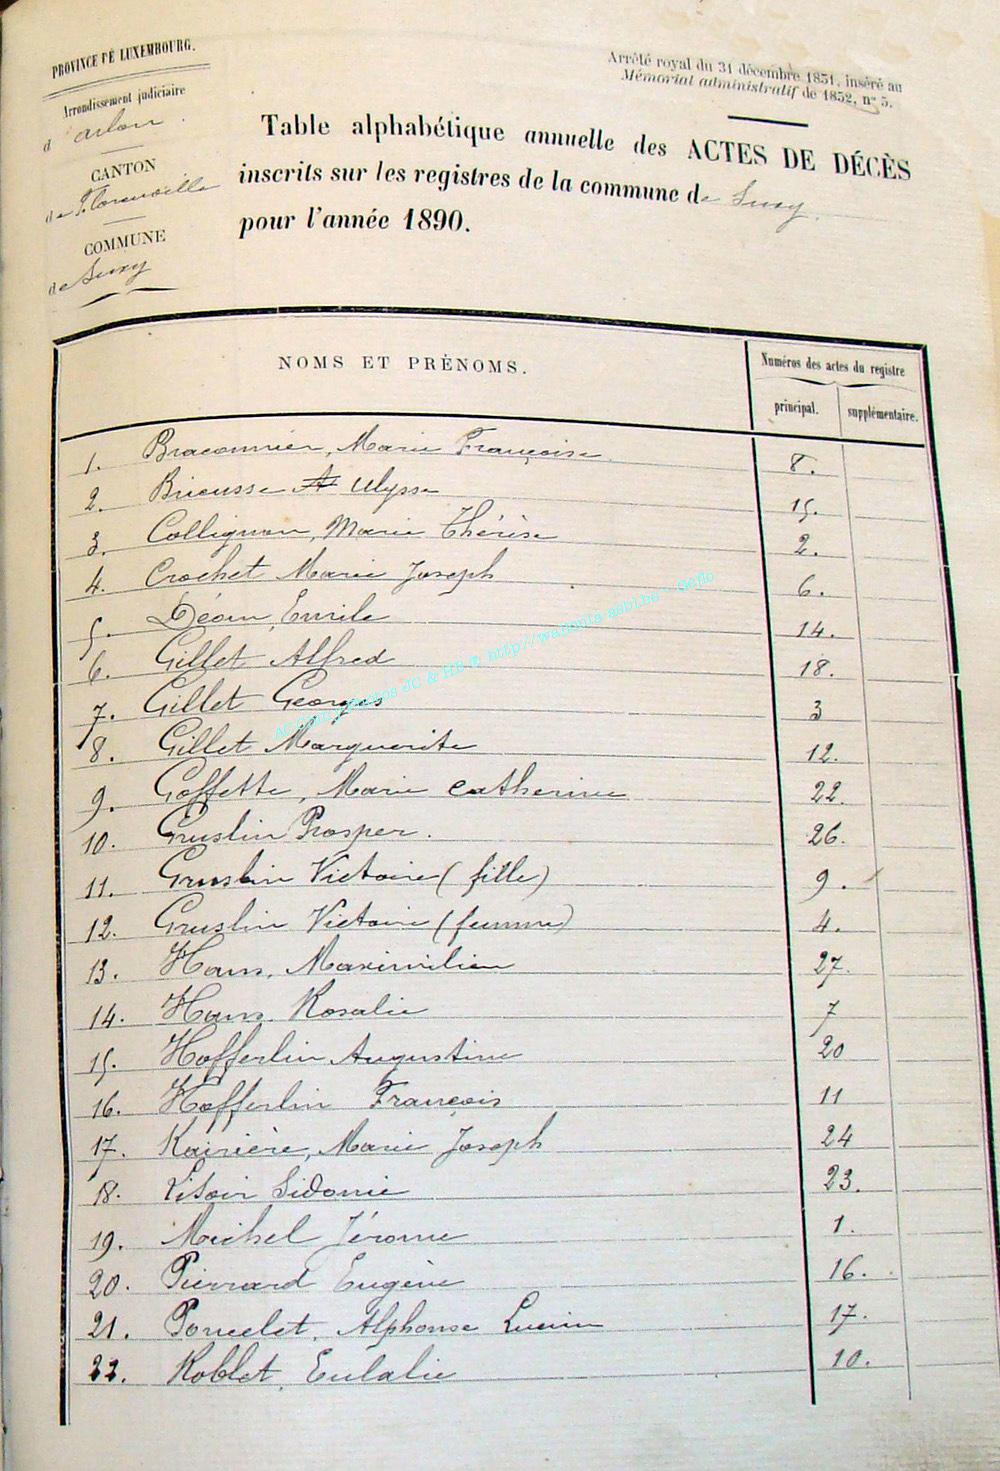 PROVINCE DE LUXEMBOURG.
Arrondissement judiciaire
d'arlon.
CANTON
de Florenville
COMMUNE
de Suxy
Arrêté royal du 31 décembre 1851, inséré au
Mémorial administratif de 1852, n° 5.
Table alphabétique annuelle des ACTES DE DÉCÈS
inscrits sur les registres de la commune de Suxy.
pour l'année 1890.
NOMS ET PRÉNOMS.
Numéros des actes du registre
principal. supplémentaire.
1. Braconnier, Marie Françoise 8.
2. Bricusse A Ulysse 15.
3. Collignon, Marie Thérèse 2.
4. Crochet Marie Joseph 6.
5. Déom, Emile 14.
6. Gillet Alfred 18.
7. Gillet Georges 3
8. Gillet Marguerite 12.
9. Goffette, Marie Catherine 22.
10. Gruslin Prosper. 26.
11. Gruslin Victoire (fille) 9.
12. Gruslin Victoire (femme) 4.
13. Hans, Maximilien 27.
14. Hans Rosalie 7
15. Hofferlin Augustine 20
16. Hofferlin François 11
17. Kairière, Marie Joseph 24
18. Sidonie 23.
19. Michel Jérome 1.
20. Pierrard Eugène 16.
21. Poncelet, Alphonse Lucien 17.
22. Roblet, Eulalie 10.
JC & HB © http://wallonia-asbl.be - Geflo